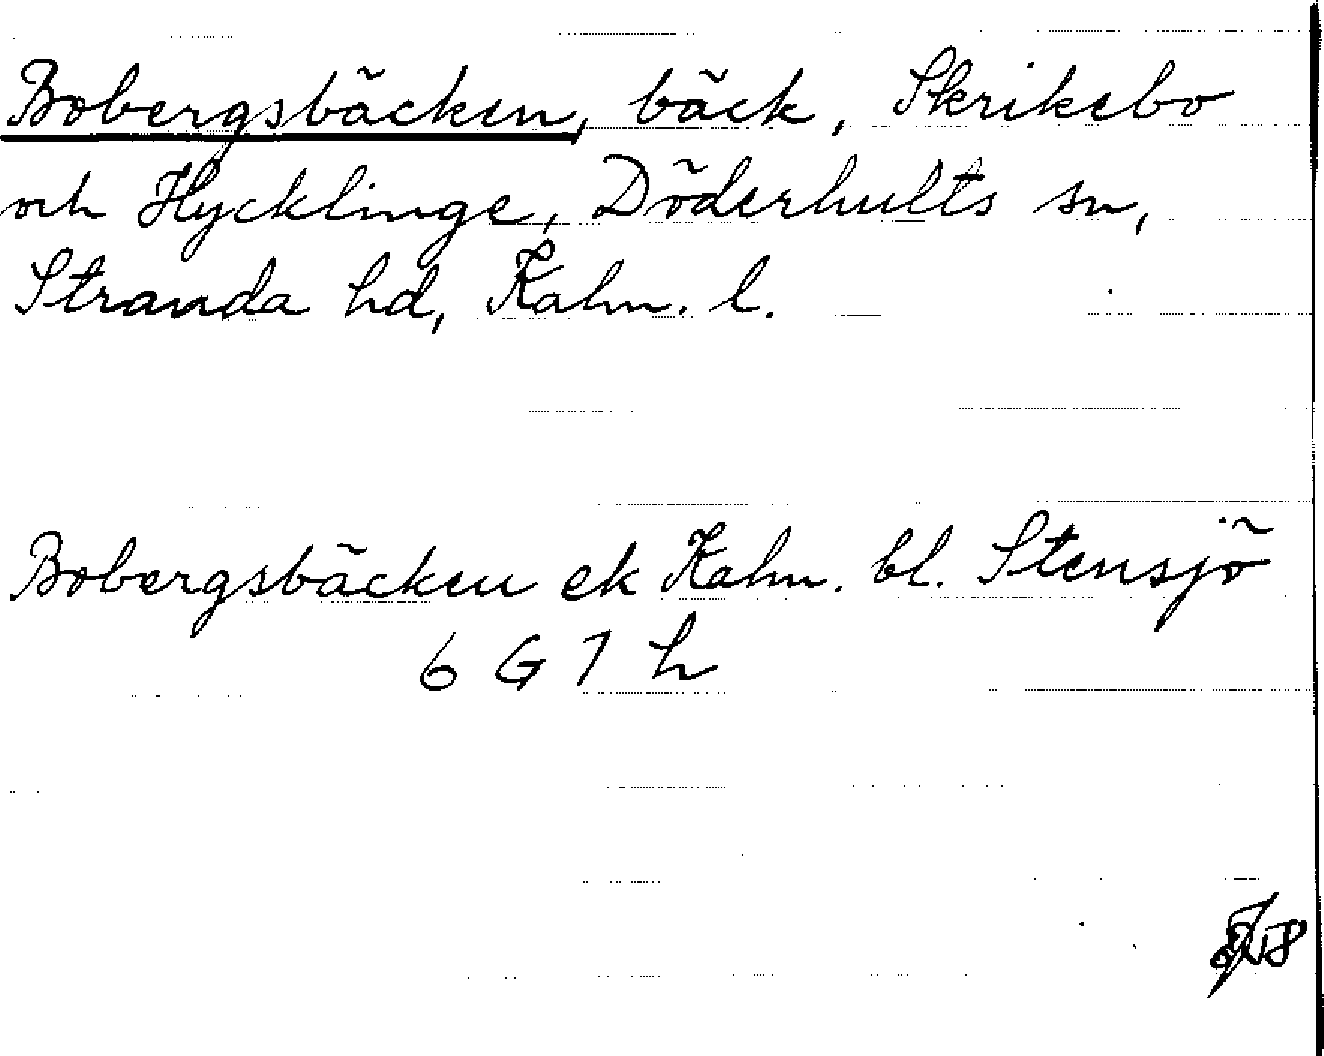 Bobergsbäcken, bäck, Skrikebo
och Hycklinge, Döderhults sn,
Stranda hd, Kalm. l.
Bobergsbäcken ek Kalm. bl. Stensjö
6 G 7 h